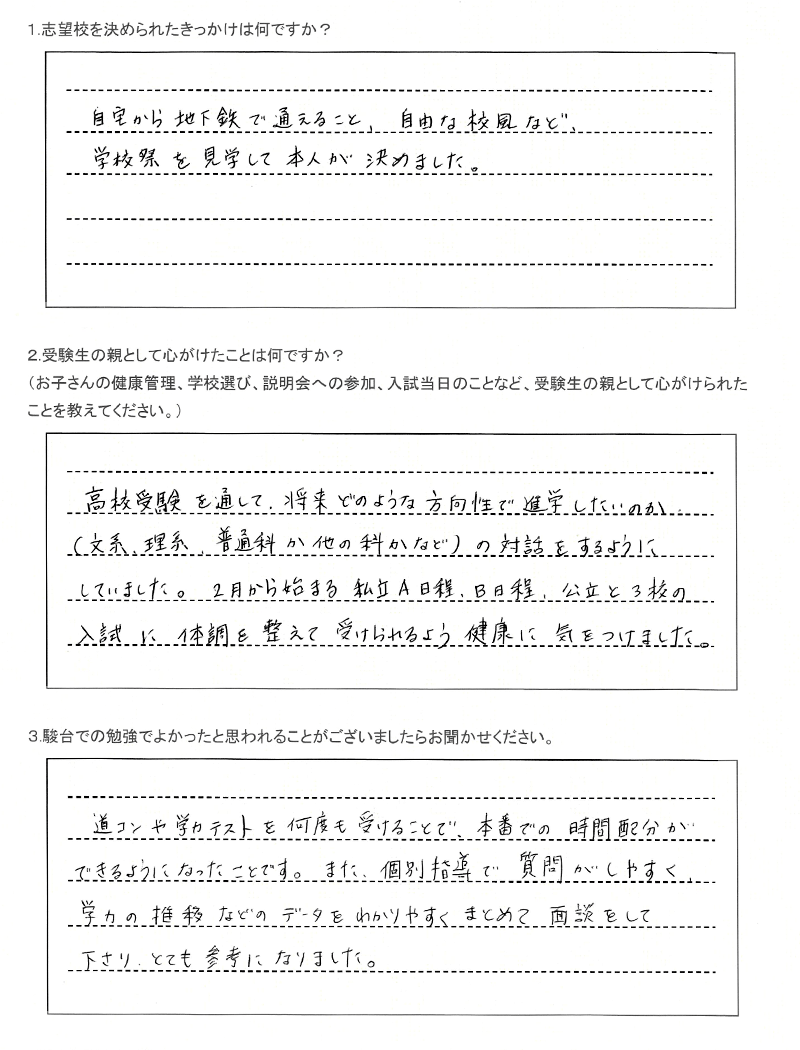 1.志望校を決められたきっかけは何ですか？
自宅から地下鉄で通えること、自由な校風など、
学校祭を見学して本人が決めました。
2.受験生の親として心がけたことは何ですか？
（お子さんの健康管理、学校選び、説明会への参加、入試当日のことなど、受験生の親として心がけられた
ことを教えてください。）
高校受験を通して、将来どのような方向性で進学したいのか
（文系、理系、普通科か他の科かなど）の対話をするように
していました。2月から始まる私立A日程、B日程、公立と3校の
入試に体調を整えて受けられるよう健康に気をつけました。
3.駿台での勉強でよかったと思われることがございましたらお聞かせください。
道コンや学力テストを何度も受けることで、本番での時間配分が
できるようになったことです。また、個別指導で質問がしやすく、
学力の推移などのデータをわかりやすくまとめて面談をして
下さり、とても参考になりました。